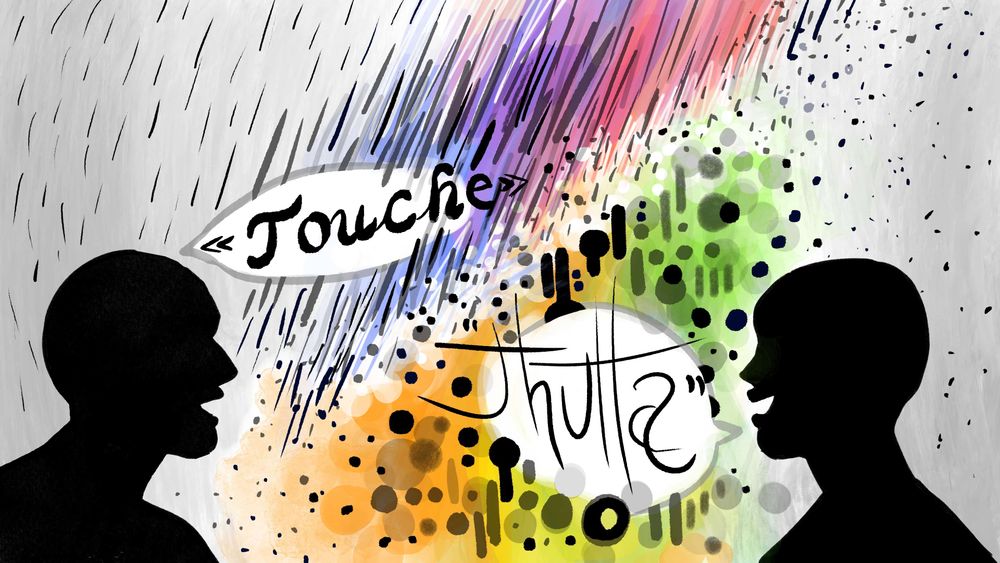 «Touche»
"Jhutta"